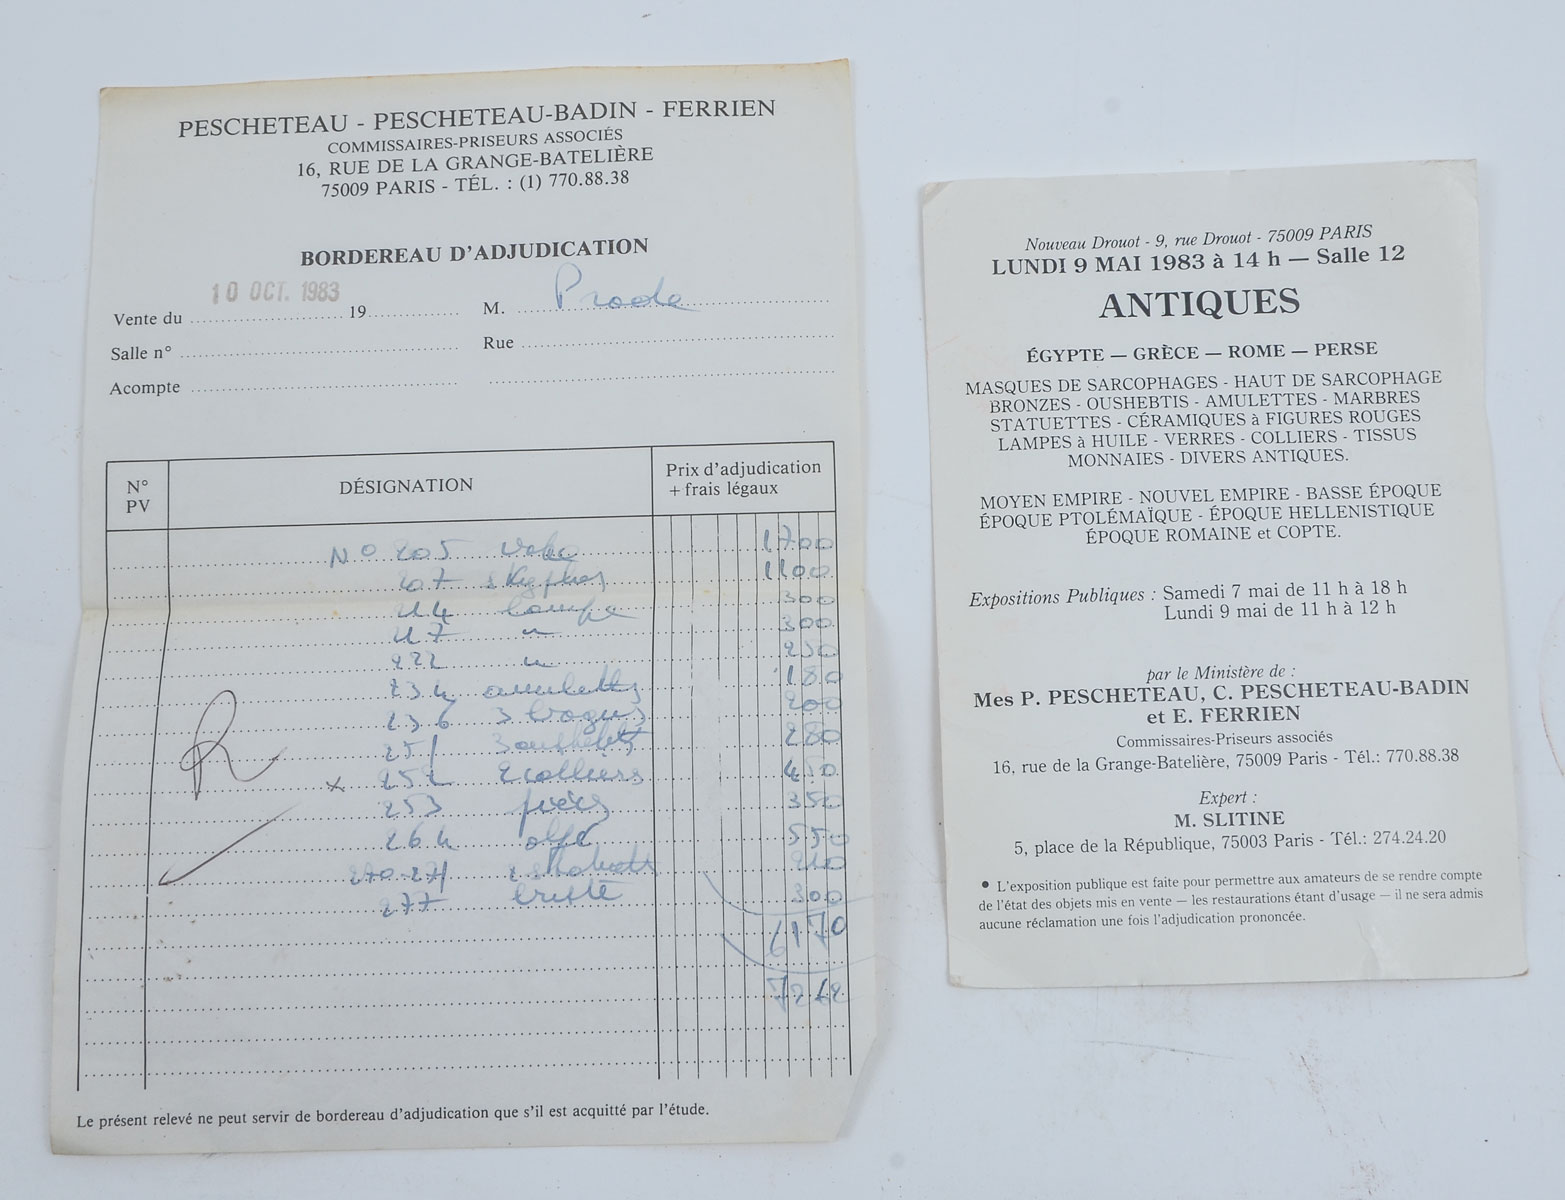 PESCHETEAU - PESCHETEAU-BADIN - FERRIEN
COMMISSAIRES-PRISEURS ASSOCIÉS
16, RUE DE LA GRANGE-BATELIÈRE
75009 PARIS - TÉL. : (1) 770.88.38
BORDEREAU D'ADJUDICATION
Vente du 10 OCT. 1983 19 M.
Salle n° Rue
Acompte
N° PV
DÉSIGNATION
Prix d'adjudication
+ frais légaux
N° 205 1700
207 skyphos 1100
214 lampe 300
217 " 300
222 " 250
234 amulettes 180
236 3 bagues 200
251 3 oushebtis 280
x 252 2 colliers 450
253 350
264 550
270-271 210
277 300
6170
7212
Le présent relevé ne peut servir de bordereau d'adjudication que s'il est acquitté par l'étude.
Nouveau Drouot - 9, rue Drouot - 75009 PARIS
LUNDI 9 MAI 1983 à 14 h — Salle 12
ANTIQUES
ÉGYPTE — GRÈCE — ROME — PERSE
MASQUES DE SARCOPHAGES - HAUT DE SARCOPHAGE
BRONZES - OUSHEBTIS - AMULETTES - MARBRES
STATUETTES - CÉRAMIQUES à FIGURES ROUGES
LAMPES à HUILE - VERRES - COLLIERS - TISSUS
MONNAIES - DIVERS ANTIQUES.
MOYEN EMPIRE - NOUVEL EMPIRE - BASSE ÉPOQUE
ÉPOQUE PTOLÉMAÏQUE - ÉPOQUE HELLENISTIQUE
ÉPOQUE ROMAINE et COPTE.
Expositions Publiques : Samedi 7 mai de 11 h à 18 h
Lundi 9 mai de 11 h à 12 h
par le Ministère de :
Mes P. PESCHETEAU, C. PESCHETEAU-BADIN
et E. FERRIEN
Commissaires-Priseurs associés
16, rue de la Grange-Batelière, 75009 Paris - Tél.: 770.88.38
Expert :
M. SLITINE
5, place de la République, 75003 Paris - Tél.: 274.24.20
• L'exposition publique est faite pour permettre aux amateurs de se rendre compte
de l'état des objets mis en vente — les restaurations étant d'usage — il ne sera admis
aucune réclamation une fois l'adjudication prononcée.